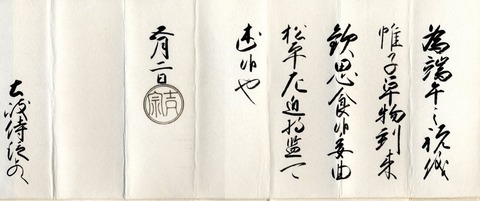 為端午之祝儀
帷子単物到来
歓思食候委曲
松平左近将監可
述候也
五月二日
吉宗
土波侍従との